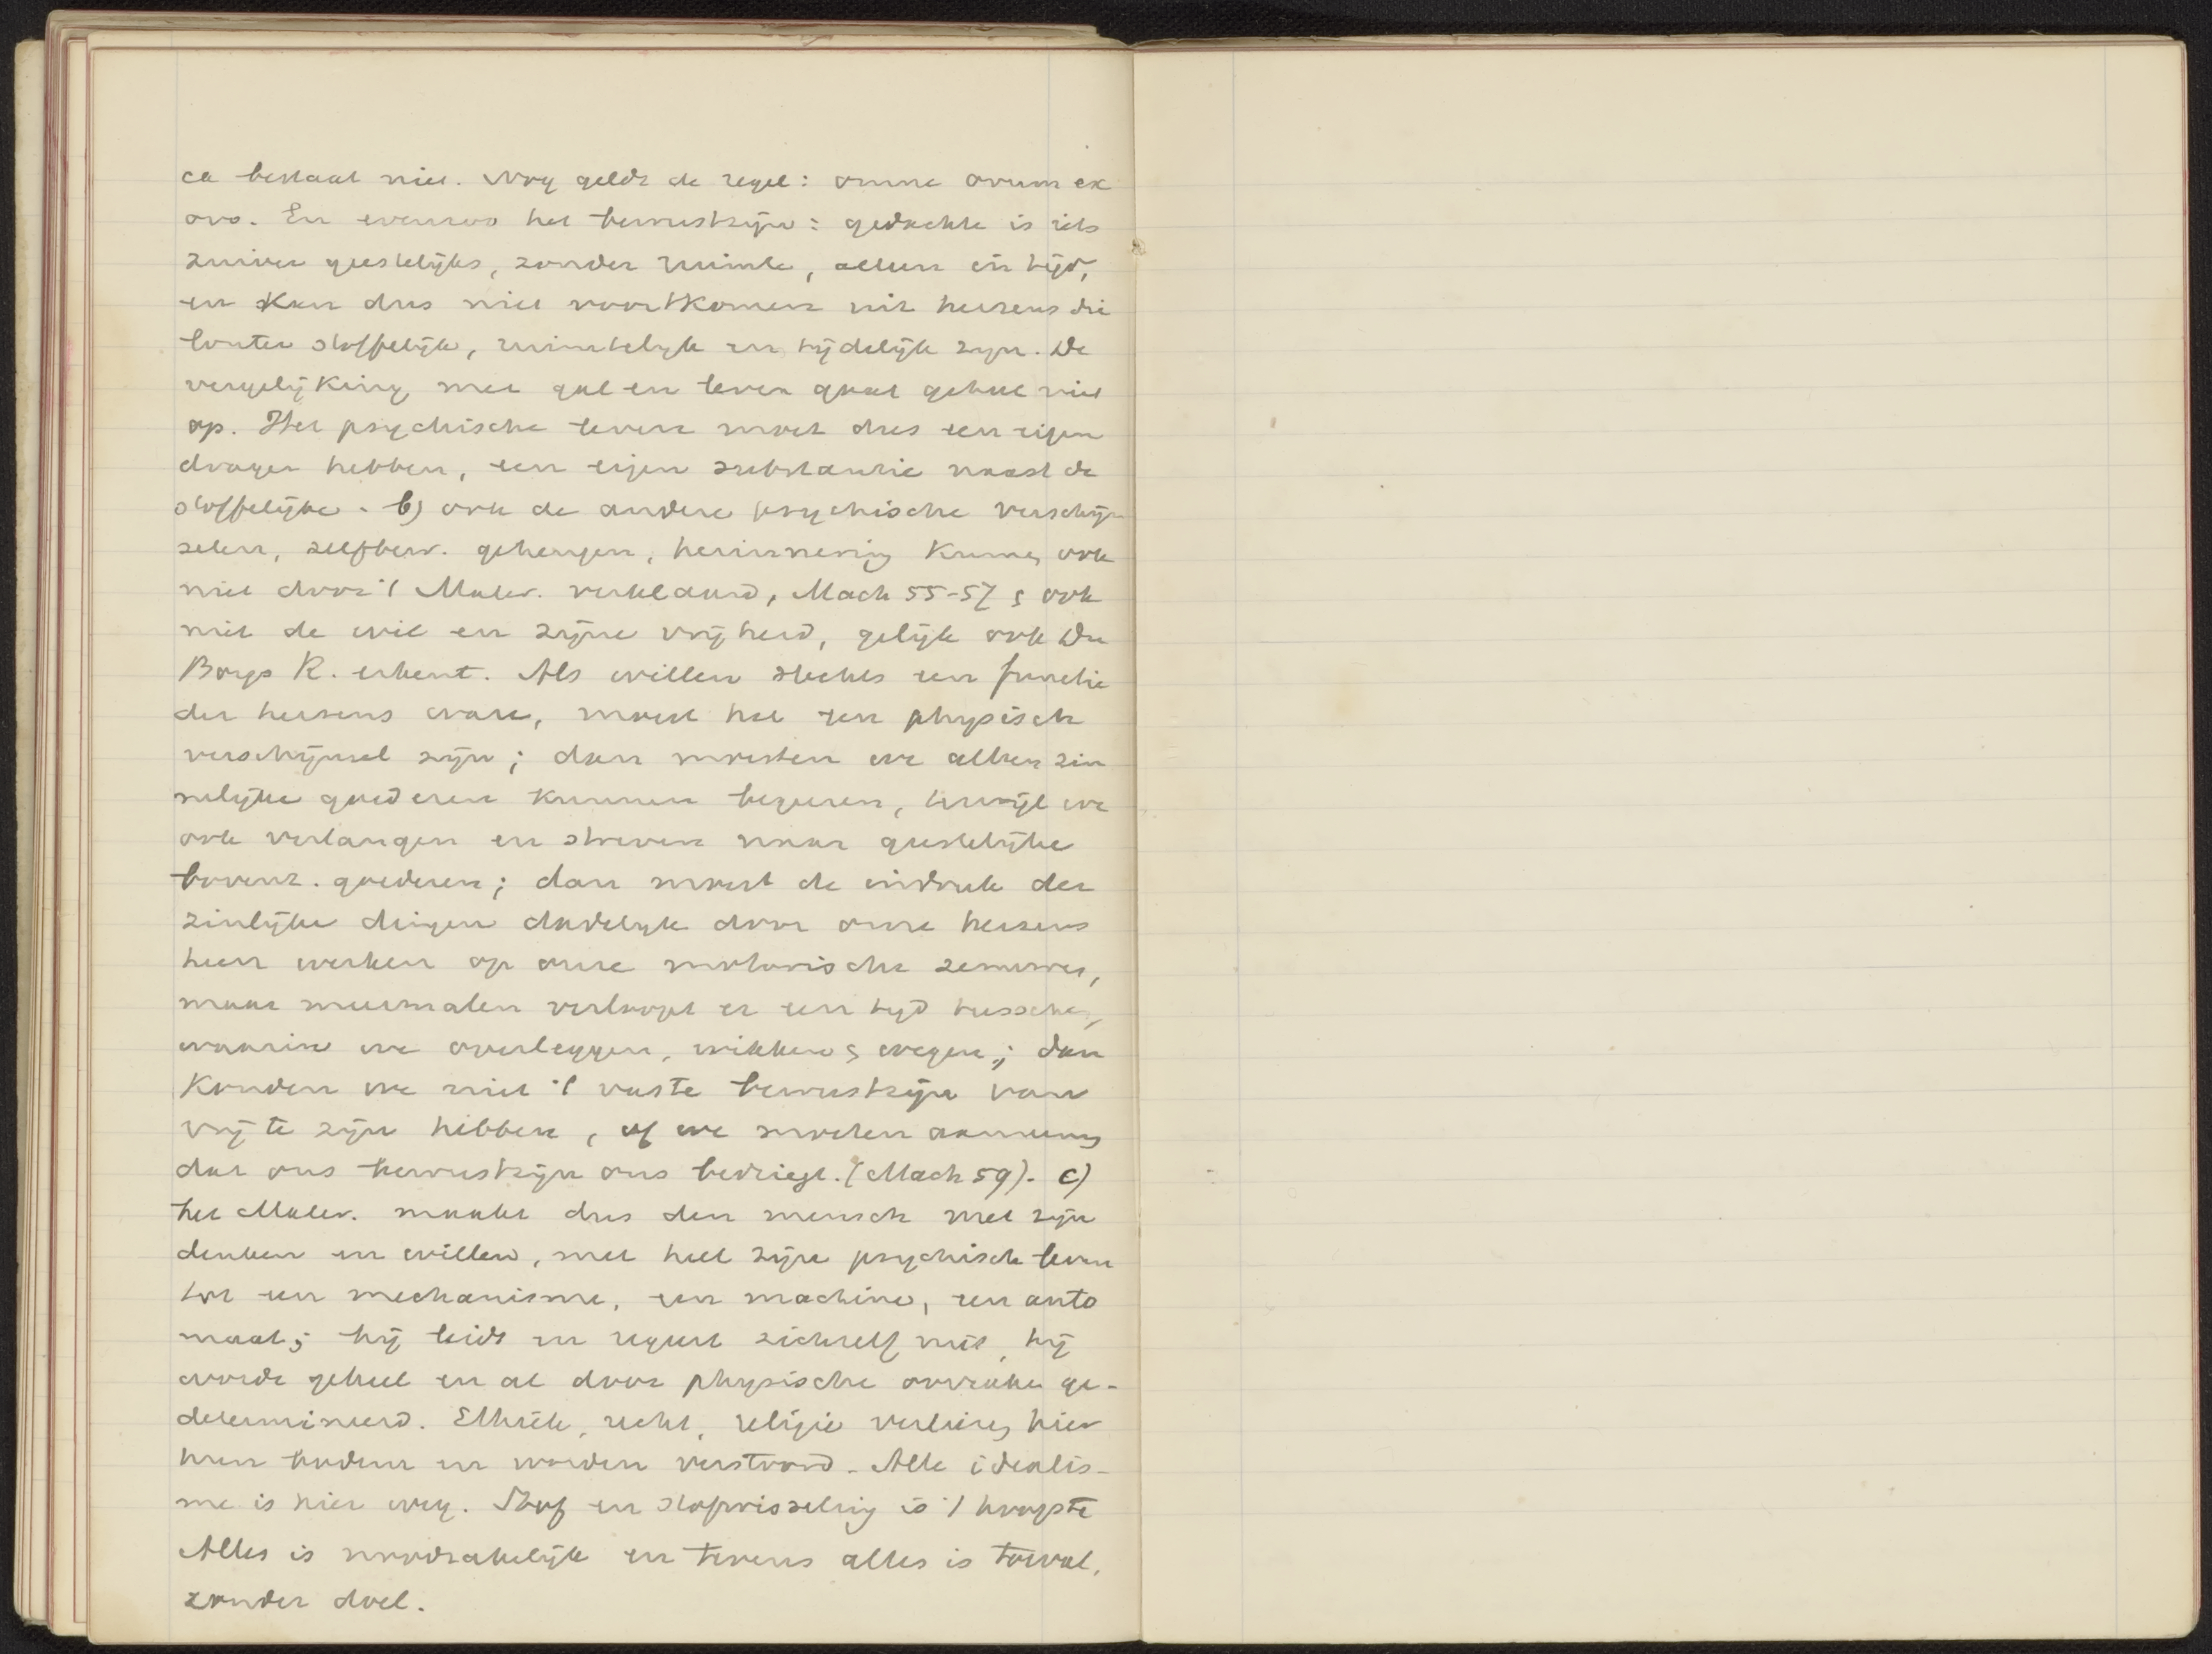 ca bestaat niet. Nog geldt de regel: omne ovum ex
ovo. En evenzoo het bewustzijn: gedachte is iets
zuiver geestelijks, zonder ruimte, alleen in tijd,
en kan dus niet voortkomen uit hersens die
louter stoffelijk, ruimtelijk en tijdelijk zijn. De
vergelijking met gal en lever gaat geheel niet
op. Het psychische leven moet dus een eigen
drager hebben, een eigen substantie naast de
stoffelijke. b) ook de andere psychische verschijn
selen, zelfbew. geheugen, herinnering kunnen ook
niet door 't Mater. verklaard, Mach 55-57 & ook
niet de wil en zijne vrijheid, gelijk ook Du
Boys R. erkent. Als willen slechts een functie
der hersens ware, moest het een physisch
verschijnsel zijn; dan moesten we alleen zin
nelijke goederen kunnen begeren, terwijl we
ook verlangen en streven naar geestelijke
bovenz. goederen; dan moest de indruk der
zinlijke dingen dadelijk door onze hersens
heen werken op onze motorische zenuwen,
maar meermalen verloopt er een tijd tusschen,
waarin we overleggen, wikken & wegen; dan
konden we niet 't vaste bewustzijn van
vrij te zijn hebben, of we moeten aannemen
dat ons bewustzijn ons bedriegt. (Mach 59). c)
het Mater. maakt dus den mensch met zijn
denken en willen, met heel zijn psychisch leven
tot een mechanisme, een machine, een auto
maat; hij leidt en regeert zichzelf niet, hij
wordt geheel en al door physische oorzaken ge-
determineerd. Ethiek, recht, religie verliezen hier
hun bodem en worden verstoord. Alle idealis-
me is hier weg. Stof en stofwisseling is 't hoogste
Alles is noodzakelijk en tevens alles is toeval,
zonder doel.